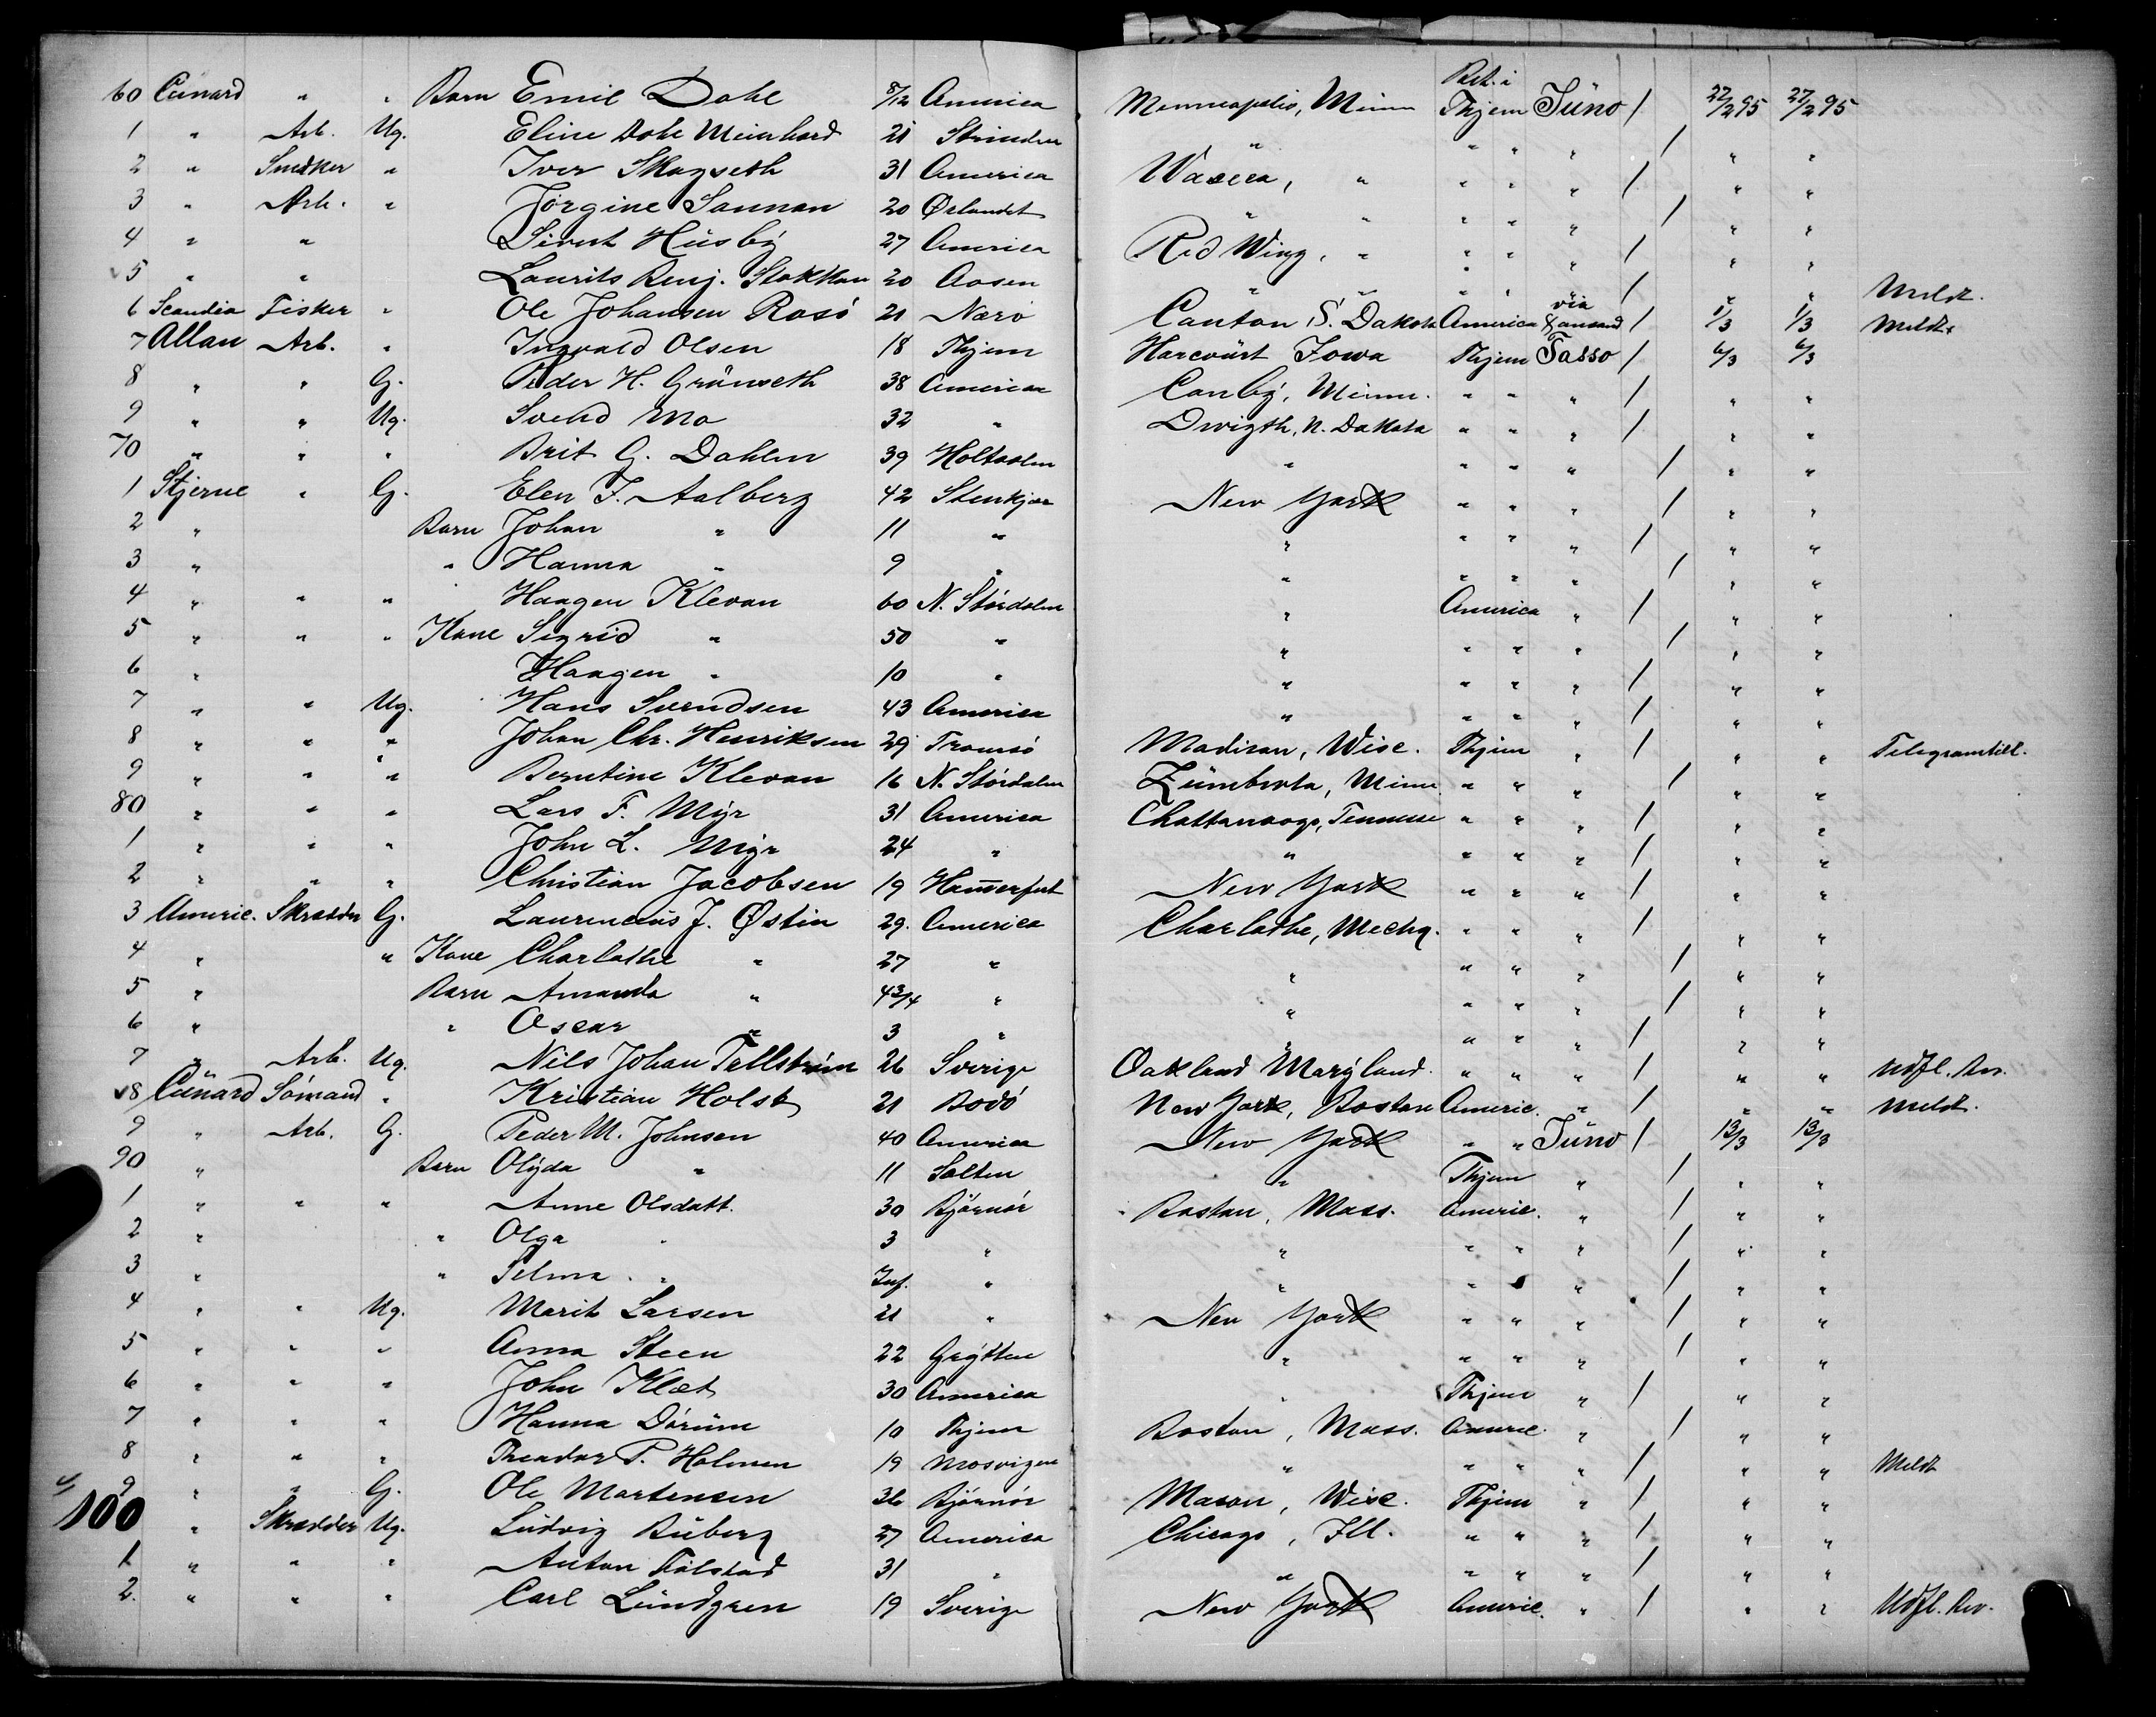 Bet. i
60 Cunard " " Barn Emil Dahl 8/12 America Menneapolis, Minn Thjem Juno / 22/2 95 27/2 95
1 " Arb. Ug. Eline Dahl Meinhard 21 Strinden " " " " / " "
2 " Snedker " Iver Skagseth 31 America Waseca, " " " " / " "
3 " Arb. " Jørgine Sannan 20 Ørlandet " " " " " / " "
4 " " Sivert Husby 27 America Red Wing, " " " " / " "
5 " " Laurits Benj. Stokkan 20 Aasen " " " " " / " " Meldt.
6 Scandia Fisker " Ole Johansen Rosø 21 Nærø Canton, S. Dakota America via Xansand / 1/3 1/3 Meldt.
7 Allan Arb. " Ingvald Olsen 18 Thjem Harcourt Iowa Thjem Tasso / 6/3 6/3
8 " " G. Peder H. Grönseth 38 America Canby, Minn. " " " / " "
9 " " Ug. Svend Mo 32 " Dwigth, N. Dakota " " " / " "
70 " " " Brit G. Dahlen 39 Holtaalen " " " " / " "
1 Stjerne " G. Elen F. Aalberg 42 Stenkjær New York " " " / " "
2 " Barn Johan " 11 " " " " " / " "
3 " " Hanna " 9 " " " " " / " "
4 " " " Haagen Klevan 60 N. Stördalen " America " / " "
5 " " " Kone Sigrid " 50 " " " " " / " "
6 " Haagen " 10 " " " " " / " "
7 " " Ug. Hans Svendsen 43 America " " " " / " "
8 " " " Johan Chr. Henriksen 29 Tromsø Madison, Wisc. Thjem " / " " Telegramtill.
9 " " " Berntine Klevan 16 N. Stördalen Zumbrota, Minn " " " / " "
80 " " " Lars F. Myr 31 America Chattanooga, Tennesse " " " / " "
1 " " " John L. Myr 24 " " " " " / " "
2 " " " Christian Jacobsen 19 Hammerfest New York " " " / " "
3 Americ. Skrædder G. Laurencius J. Østin 29. America Charlathe, Mechg. " " " / " "
4 " " Kone Charlathe " 27 " " " " " / " "
5 " Barn Amanda " 4 3/4 " " " " " / " "
6 " " Oscar " 3 " " " " " / " "
7 " Arb. Ug. Nils Johan Tellström 26 Sverige Oakland Maryland. " " " / " " Udfl. Bev.
88 Cunard Sömand " Kristian Holst 21 Bodö New York, Boston Americ. " / " " Meldt.
9 " Arb. G. Peder M. Johnsen 40 America New York " " Juno / 13/3 13/3
90 " Barn Olyda " 11 Salten " Thjem " / " "
1 " " " Anne Olsdatt. 30 Björnör Boston, Mass. Americ. " / " "
2 " " Olga " 3 " " " " " / " "
3 " " Selma " Inf. " " " " " / " "
4 " " Ug. Marit Larsen 21 " New York " " " / " "
5 " " " Anna Steen 22 Grytten " " " " / " "
6 " " " John Klet 30 America " Thjem " / " "
7 " " " Hanna Dörum 10 Thjem Boston, Mass. Americ. " / " "
8 " " " Theodor P. Holmen 19 Mosvigen " " " " / " " Meldt
9 " " G. Ole Martensen 36 Björnör Mason, Wisc. Thjem " / " "
100 " Skrædder Ug. Ludvig Buberg 27 America Chicago, Ill. " " " / " "
1 " " " Anton Folstad 31 " " " " " / " "
2. " " " Carl Lundgren 19 Sverige New York Americ. " / " " Udfl. Bev.